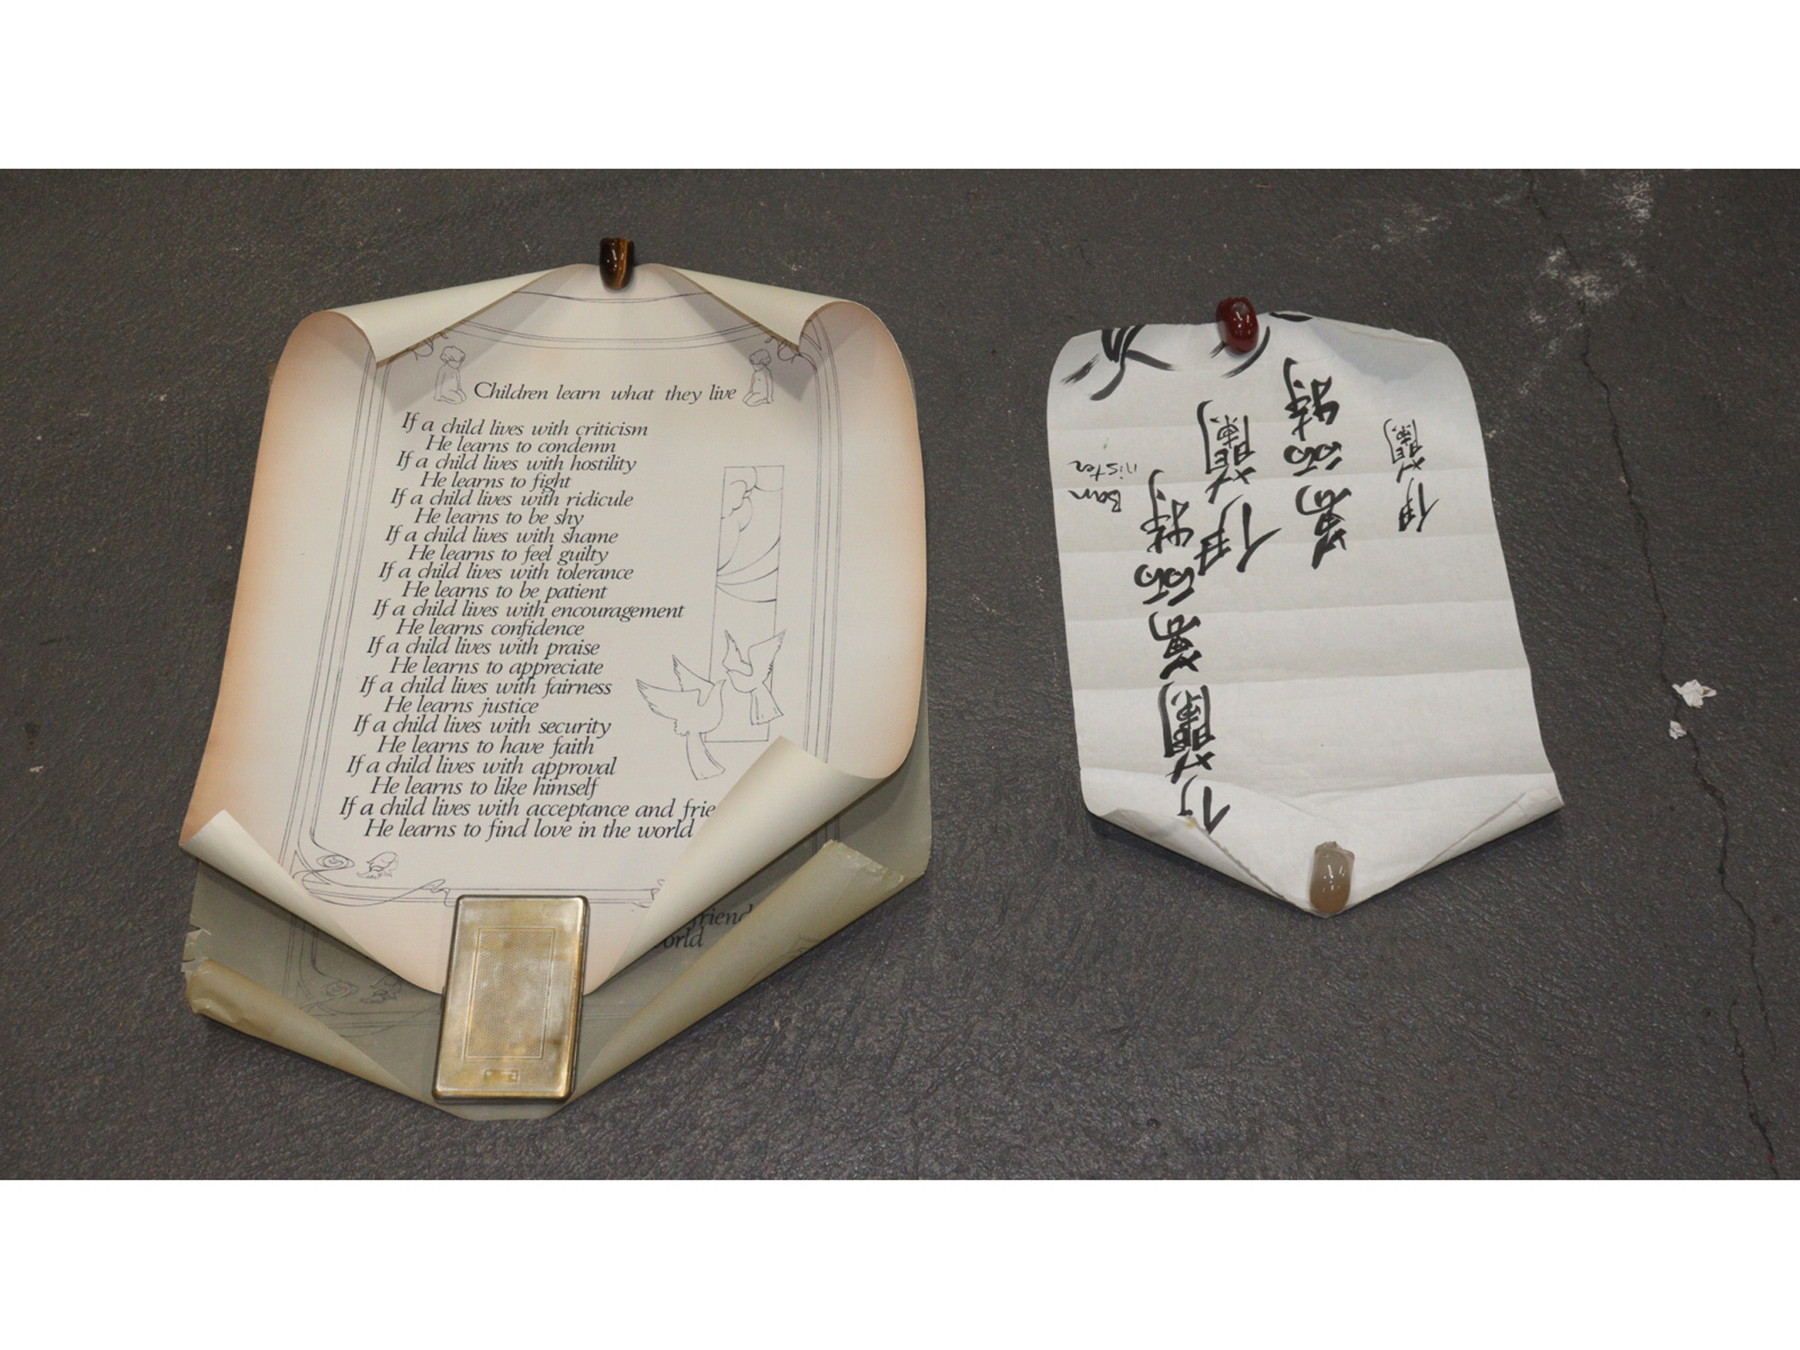 Children learn what they live
If a child lives with criticism
He learns to condemn
If a child lives with hostility
He learns to fight
If a child lives with ridicule
He learns to be shy
If a child lives with shame
He learns to feel guilty
If a child lives with tolerance
He learns to be patient
If a child lives with encouragement
He learns confidence
If a child lives with praise
He learns to appreciate
If a child lives with fairness
He learns justice
If a child lives with security
He learns to have faith
If a child lives with approval
He learns to like himself
If a child lives with acceptance and frie
He learns to find love in the world
friend
orld
Ban
nister
伊蘭
特
伊蘭
特
伊蘭